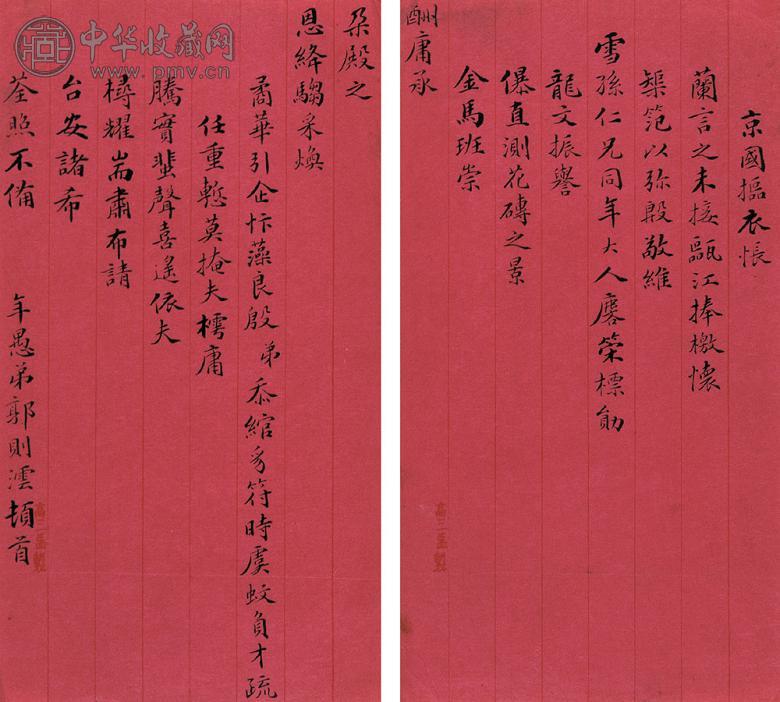 京國摳衣悵
蘭言之未接甌江捧檄懷
榘范以弥殷敬維
雪孫仁兄同年大人麐榮標勛
龍文振譽
儤直測花磚之景
金馬班崇
酬庸承
朵殿之
恩綘騶采煥
矞華引企忭藻良殷 弟忝綰 符時虞蚊負才疏
任重慙莫掩夫樗庸
騰實蜚聲喜遙依夫
樽耀耑肅布請
台安諸希
荃照不備 年愚弟郭則澐頓首
中华收藏网
www.pmv.cn